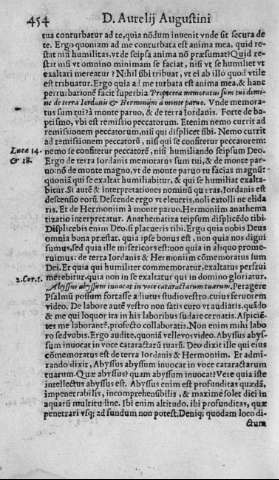 454 D. Aurelij Augustini
tua conturbatur ad te, quia nõdum inuenit vnde de te secura sit de
te. Ergo quoniam ad me conturbata est anima mea, quid re-
stat nisi humilitas, vt de seipsa anima nõ præsumat? Quid re-
stat nisi vt omnino minimam se faciat, nisi vt se humiliet vt
exaltari mereatur? Nihil sibi tribuat, vt ei ab illo quod vtile
est tribuatur. Ergo quia ad me turbata est anima mea, & hanc
perturbationẽ facit superbia: Propterea memoratus sum tui domi-
ne de terra Iordanis & Hermoniim à monte paruo. Vnde memora-
tus sum tui? à monte paruo, & de terra Iordanis. Forte de ba-
ptismo, vbi est remissio peccatorum. Etenim nemo currit ad
remissionem peccatorum, nisi qui displicet sibi. Nemo currit
ad remissionem peccatorũ, nisi qui se confitetur peccatorem:
Lucæ 14. nemo se confitetur peccatorẽ, nisi humiliando seipsum Deo.
& 18. Ergo de terra Iordanis memoratus sum tui, & de monte par-
uo: nõ de monte magno, vt de monte paruo tu facias magnũ:
quoniã qui se exaltat humiliabitur, & qui se humiliat exalta-
bitur. Si autẽ & interpretationes nominũ quæras, Iordanis est
descensio eorũ. Descende ergo vt eleueris, noli extolli ne elida-
ris. Et de Hermoniim à monte paruo. Hermoniim anathema
tizatio interpretatur. Anathematiza teipsum displicẽdo tibi.
Displicebis enim Deo si placueris tibi. Ergo quia nobis Deus
omnia bona præstat, quia ipse bonus est, non quia nos digni
sumus, sed quia ille misericors est, non quia in aliquo prome-
ruimus: de terra Iordanis & Hermoniim cõmemoratus sum
Dei. Et quia qui humiliter commemoratur, exaltatus perfrui
2. Cor. 1. merebitur, quia non in se exaltatur qui in domino gloriatur.
Abyssus abyssum inuocat in voce cataractarum tuarum. Peragere
Psalmũ possum fortasse adiuuer studio vestro, cuius feruorem
video. De labore autẽ vestro non satis curo vt auditis, quãdo
& me qui loquor ita in his laboribus sudare cernatis. Aspiciẽ-
tes me laborantẽ, profecto collaboratis. Non enim mihi labo
ro sed vobis. Ergo audite, quoniã vellevos video. Abyssus abys-
sum inuocat in voce cataractarũ tuarũ. Deo dixit ille qui eius
cõmemoratus est de terra Iordanis & Hermoniim. Et admi-
rando dixit, Abyssus abyssum inuocat in voce cataractarum
tuarum. Quæ abyssus quam abyssum inuocat? Vere quia iste
intellectus abyssus est. Abyssus enim est profunditas quædã,
impenetrabilis, incomprehensibilis, & maxime solet dici in
aquarũ multitudine. Ibi enim altitudo, ibi profunditas, quæ
penetrari vsq; ad fundum non potest. Deniq; quodam loco di-
ctum